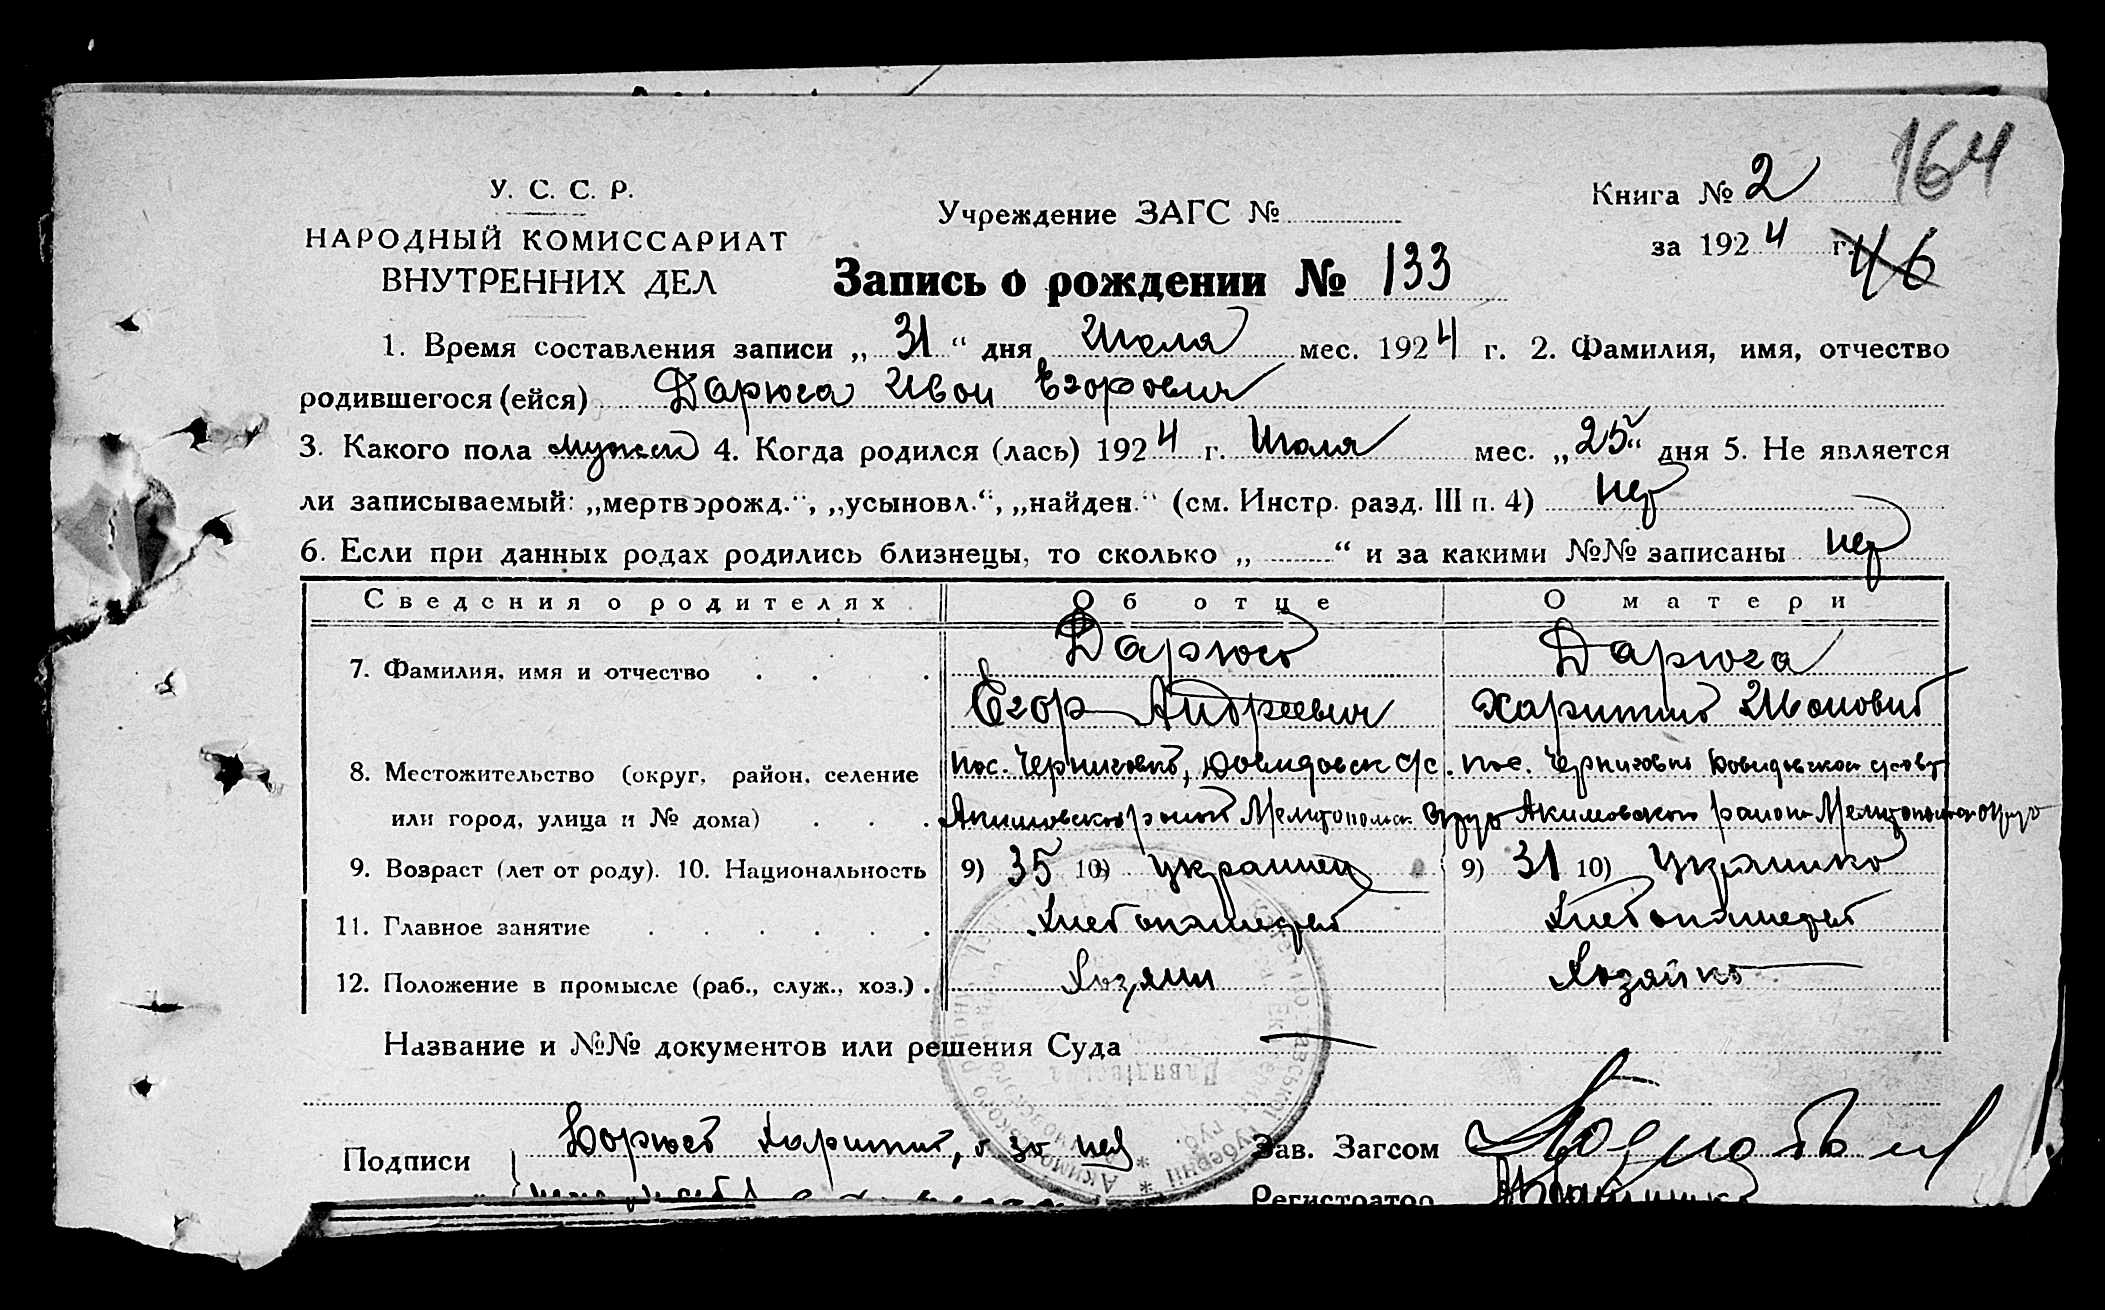 164
У. С. С. Р.
НАРОДНЫЙ КОМИССАРИАТ
ВНУТРЕННИХ ДЕЛ
Учреждение ЗАГС №
Книга № 2
за 1924 г.
46
Запись о рождении № 133
1. Время составления записи „31“ дня Июля мес. 1924 г. 2. Фамилия, имя, отчество
родившегося (ейся) Дарюга Иван Егорович
3. Какого пола мужск 4. Когда родился (лась) 1924 г. Июля мес. „25“ дня 5. Не является
ли записываемый: „мертворожд.“, „усыновл.“, „найден.“ (см. Инстр. разд. III п. 4) нет
6. Если при данных родах родились близнецы, то сколько „ “ и за какими №№ записаны нет
Сведения о родителях Об отце О матери
7. Фамилия, имя и отчество Дарюга Дарюга
Егор Андреевич Харитина Ивановна
8. Местожительство (округ, район, селение пос. Черниговка, Давидовск с/с. пос. Черниговка Давидовской
или город, улица и № дома) Акимовского района Мелитопольск округа Акимовского района Мелитопольск округа
9. Возраст (лет от роду). 10. Национальность 9) 35 10) украинец 9) 31 10) Украинка
11. Главное занятие Хлебопашество Хлебопашество
12. Положение в промысле (раб., служ., хоз.) Хозяин Хозяйка
Название и №№ документов или решения Суда —
Подписи Дарюга Харитина, а за нея
Зав. Загсом
Регистратор